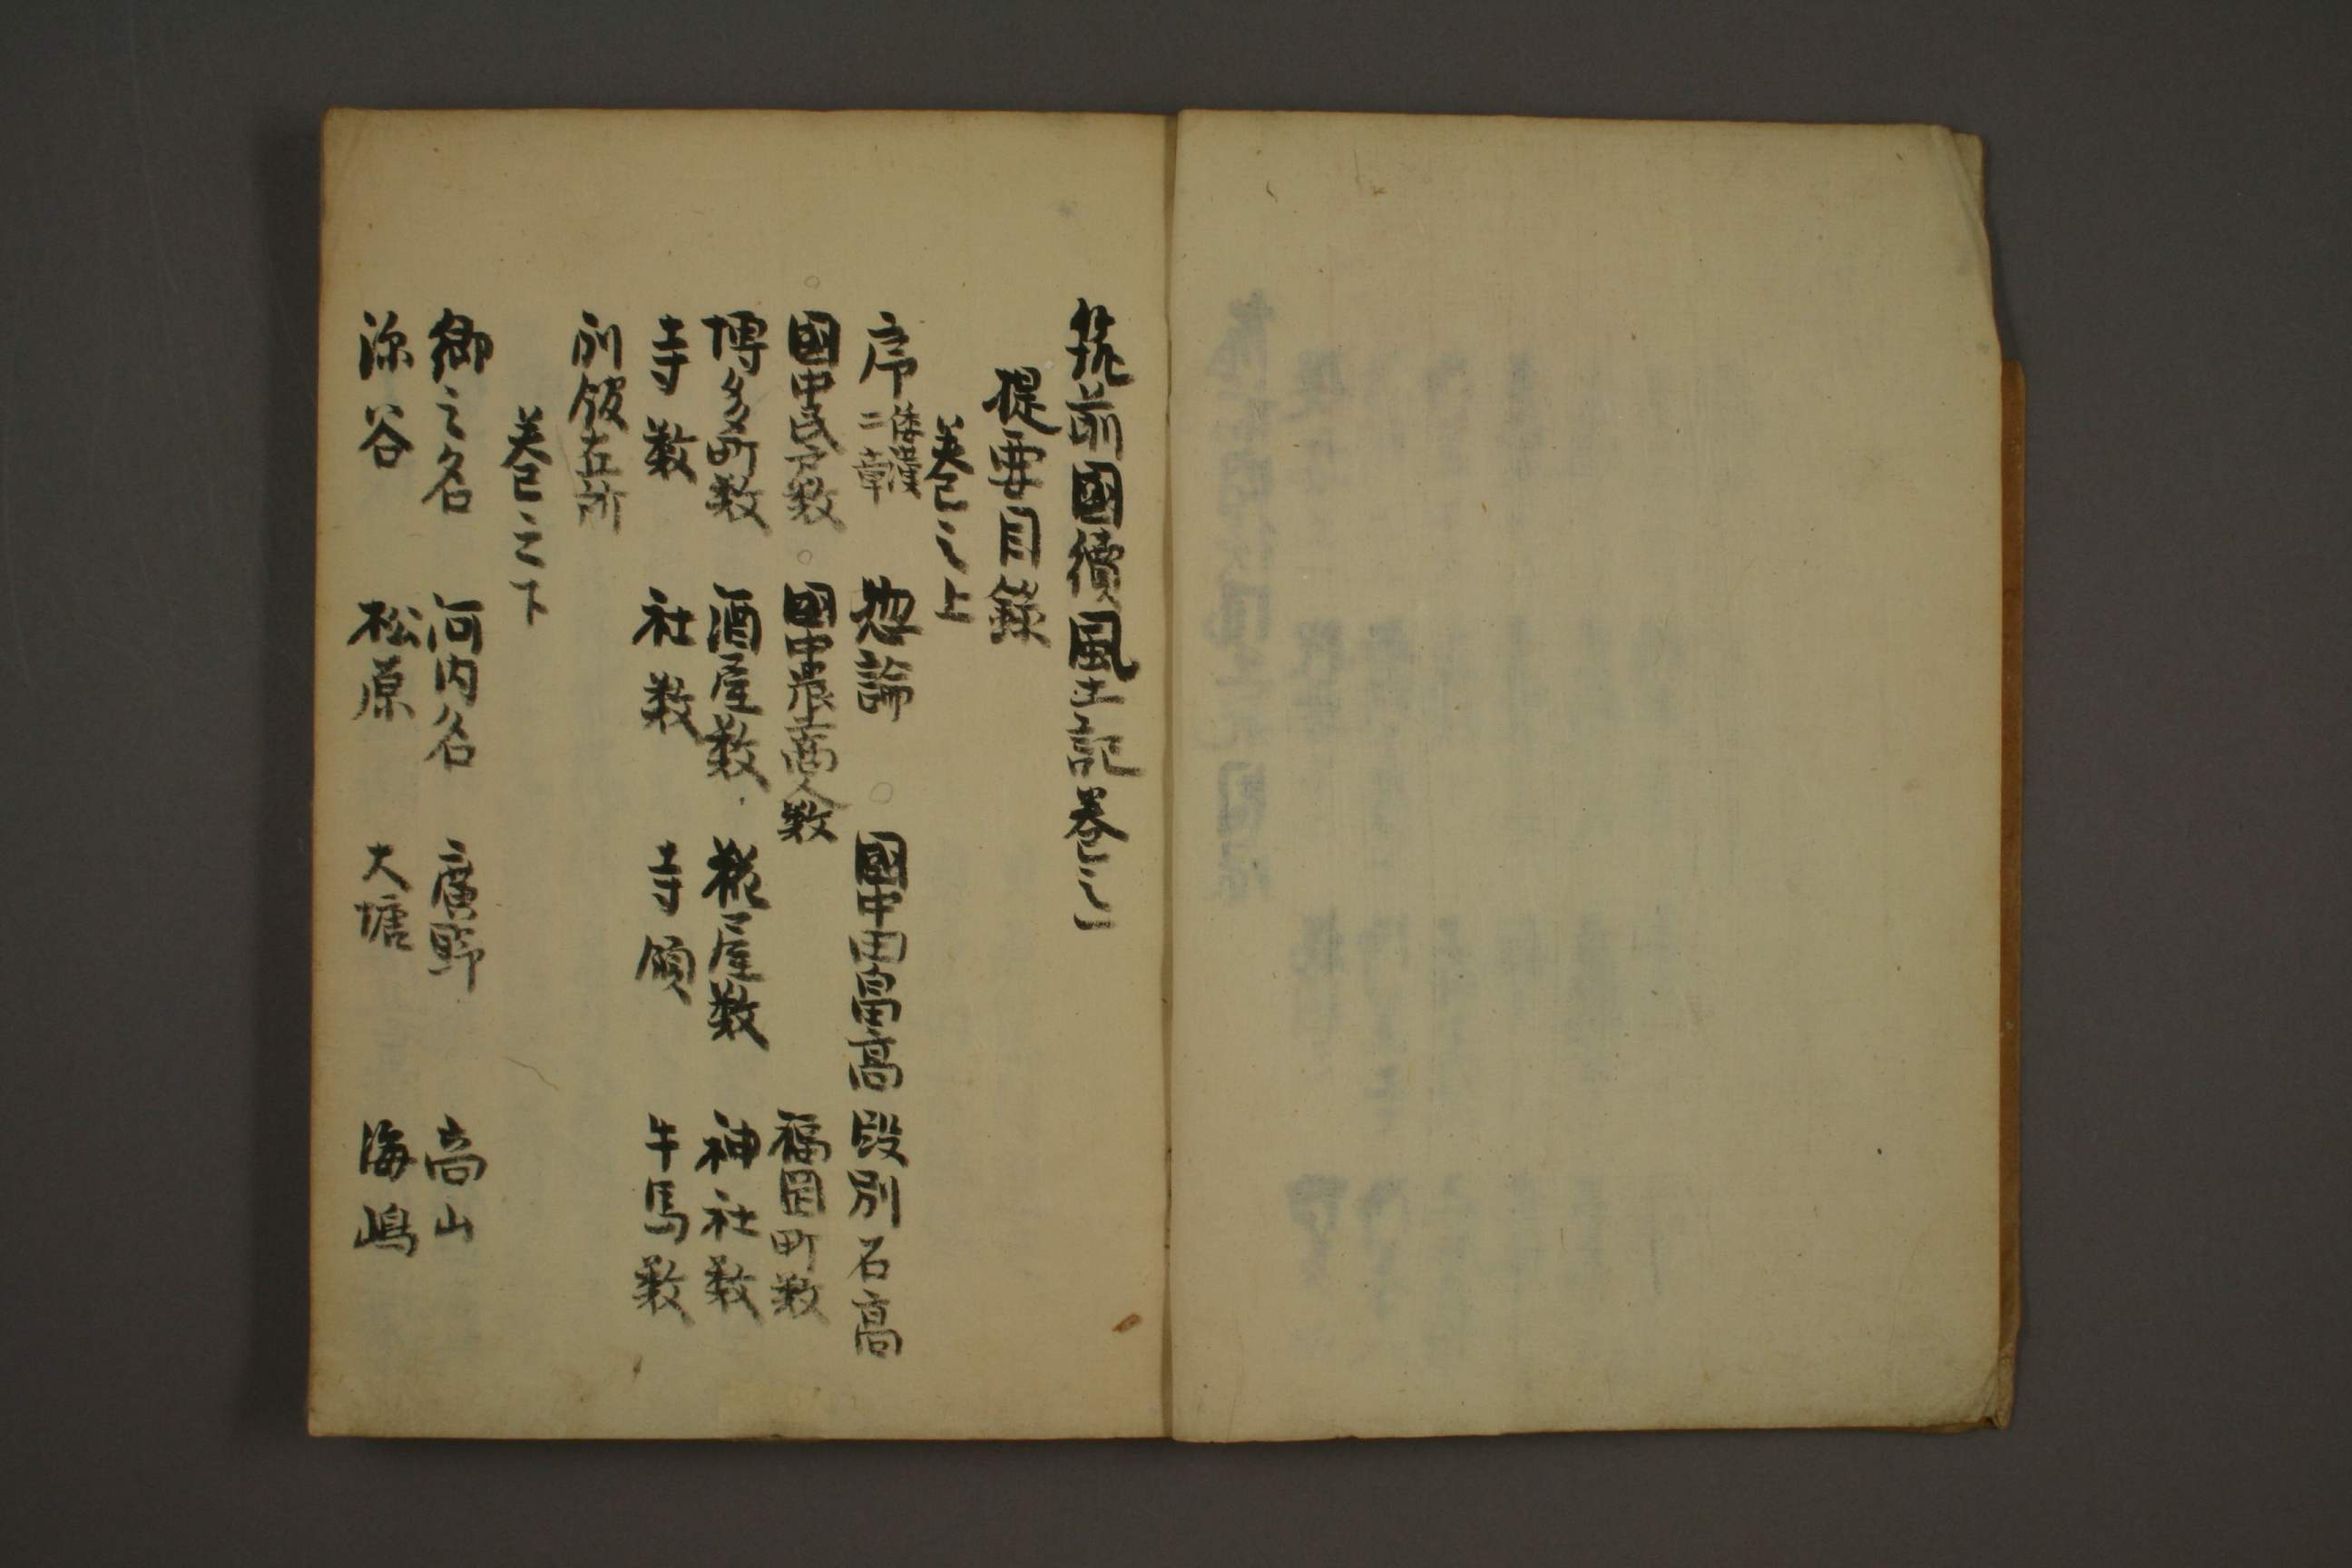 筑前國續風土記巻之一
提要目錄
巻之上
序 倭漢二章 惣論 國中田畠高 段別石高
國中民家数 國中農工商人数 福岡町数
博多町数 酒屋数 糀屋数 神社数
寺数 社数 寺領 牛馬数
別館在所
巻之下
郷之名 河内名 廣野 高山
深谷 松原 大塘 海嶋